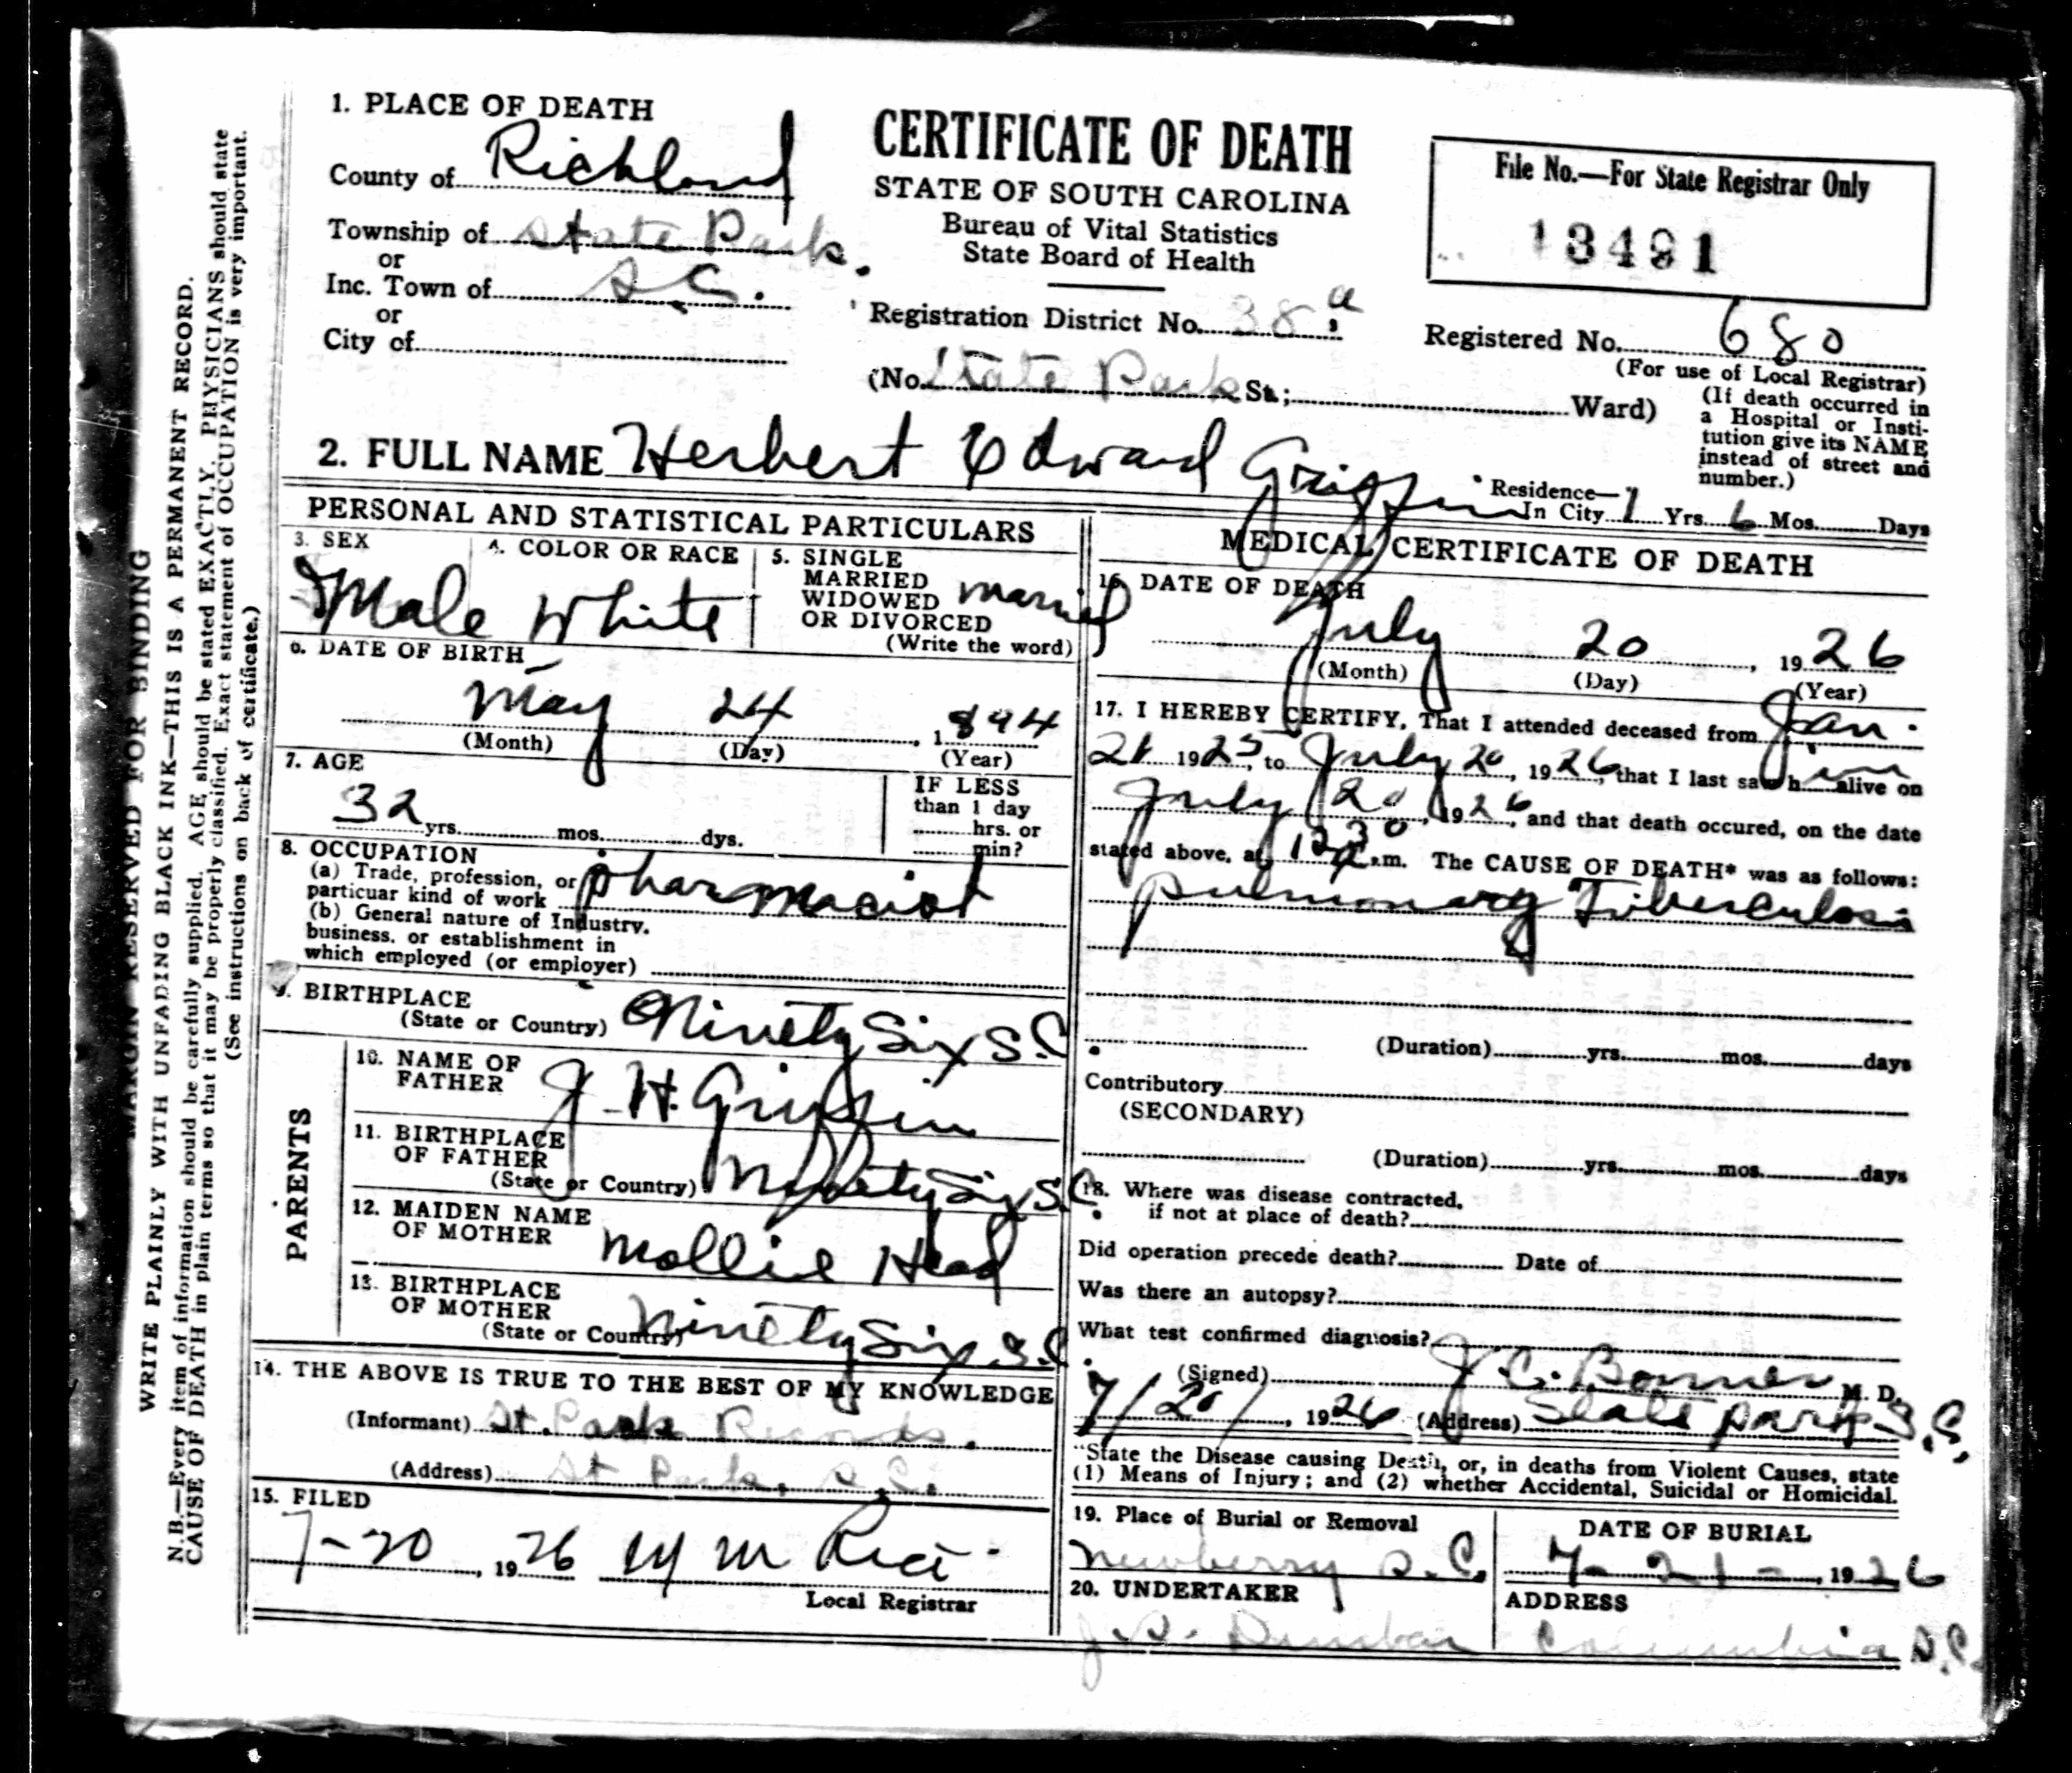 1. PLACE OF DEATH
County of Richland
Township of State Park.
or
Inc. Town of S.C.
or
City of
CERTIFICATE OF DEATH
STATE OF SOUTH CAROLINA
Bureau of Vital Statistics
State Board of Health
Registration District No. 38 a
(No. State Park St.; Ward)
File No.—For State Registrar Only
13491
Registered No. 680
(For use of Local Registrar)
(If death occurred in
a Hospital or Insti-
tution give its NAME
instead of street and
number.)
2. FULL NAME Herbert Edward Griffin
Residence—
In City 1 Yrs. 6 Mos. Days
PERSONAL AND STATISTICAL PARTICULARS
3. SEX
Male
4. COLOR OR RACE
White
5. SINGLE
MARRIED
WIDOWED
OR DIVORCED
(Write the word)
married
6. DATE OF BIRTH
May 24, 1894
(Month) (Day) (Year)
7. AGE
32 yrs. mos. dys.
IF LESS
than 1 day
hrs. or
min?
8. OCCUPATION
(a) Trade, profession, or
particuar kind of work pharmacist
(b) General nature of Industry,
business, or establishment in
which employed (or employer)
9. BIRTHPLACE
(State or Country) Ninety Six S.C
PARENTS
10. NAME OF
FATHER J. H. Griffin
11. BIRTHPLACE
OF FATHER
(State or Country) Ninety Six S.C.
12. MAIDEN NAME
OF MOTHER Mollie Head
13. BIRTHPLACE
OF MOTHER
(State or Country) Ninety Six S.C
14. THE ABOVE IS TRUE TO THE BEST OF MY KNOWLEDGE
(Informant) St. Park Records.
(Address) St Park, S.C.
15. FILED
7-20, 1926 M Rice
Local Registrar
MEDICAL CERTIFICATE OF DEATH
16. DATE OF DEATH
July 20, 1926
(Month) (Day) (Year)
17. I HEREBY CERTIFY, That I attended deceased from Jan.
21 1925, to July 20, 1926, that I last saw him alive on
July 20, 1926, and that death occured, on the date
stated above, at 12 30 a.m. The CAUSE OF DEATH* was as follows:
pulmonary Tuberculosis
(Duration) yrs. mos. days
Contributory
(SECONDARY)
(Duration) yrs. mos. days
18. Where was disease contracted,
if not at place of death?
Did operation precede death? Date of
Was there an autopsy?
What test confirmed diagnosis?
(Signed) J. C. Bonner M. D.
7/20/, 1926 (Address) State park S.C.
*State the Disease causing Death, or, in deaths from Violent Causes, state
(1) Means of Injury; and (2) whether Accidental, Suicidal or Homicidal.
19. Place of Burial or Removal
Newberry S.C.
DATE OF BURIAL
7-21-, 1926
20. UNDERTAKER
J. S. Dunbar
ADDRESS
Columbia S.C.
MARGIN RESERVED FOR BINDING
WRITE PLAINLY WITH UNFADING BLACK INK—THIS IS A PERMANENT RECORD.
N. B.—Every item of information should be carefully supplied. AGE should be stated EXACTLY. PHYSICIANS should state
CAUSE OF DEATH in plain terms so that it may be properly classified. Exact statement of OCCUPATION is very important.
(See instructions on back of certificate.)